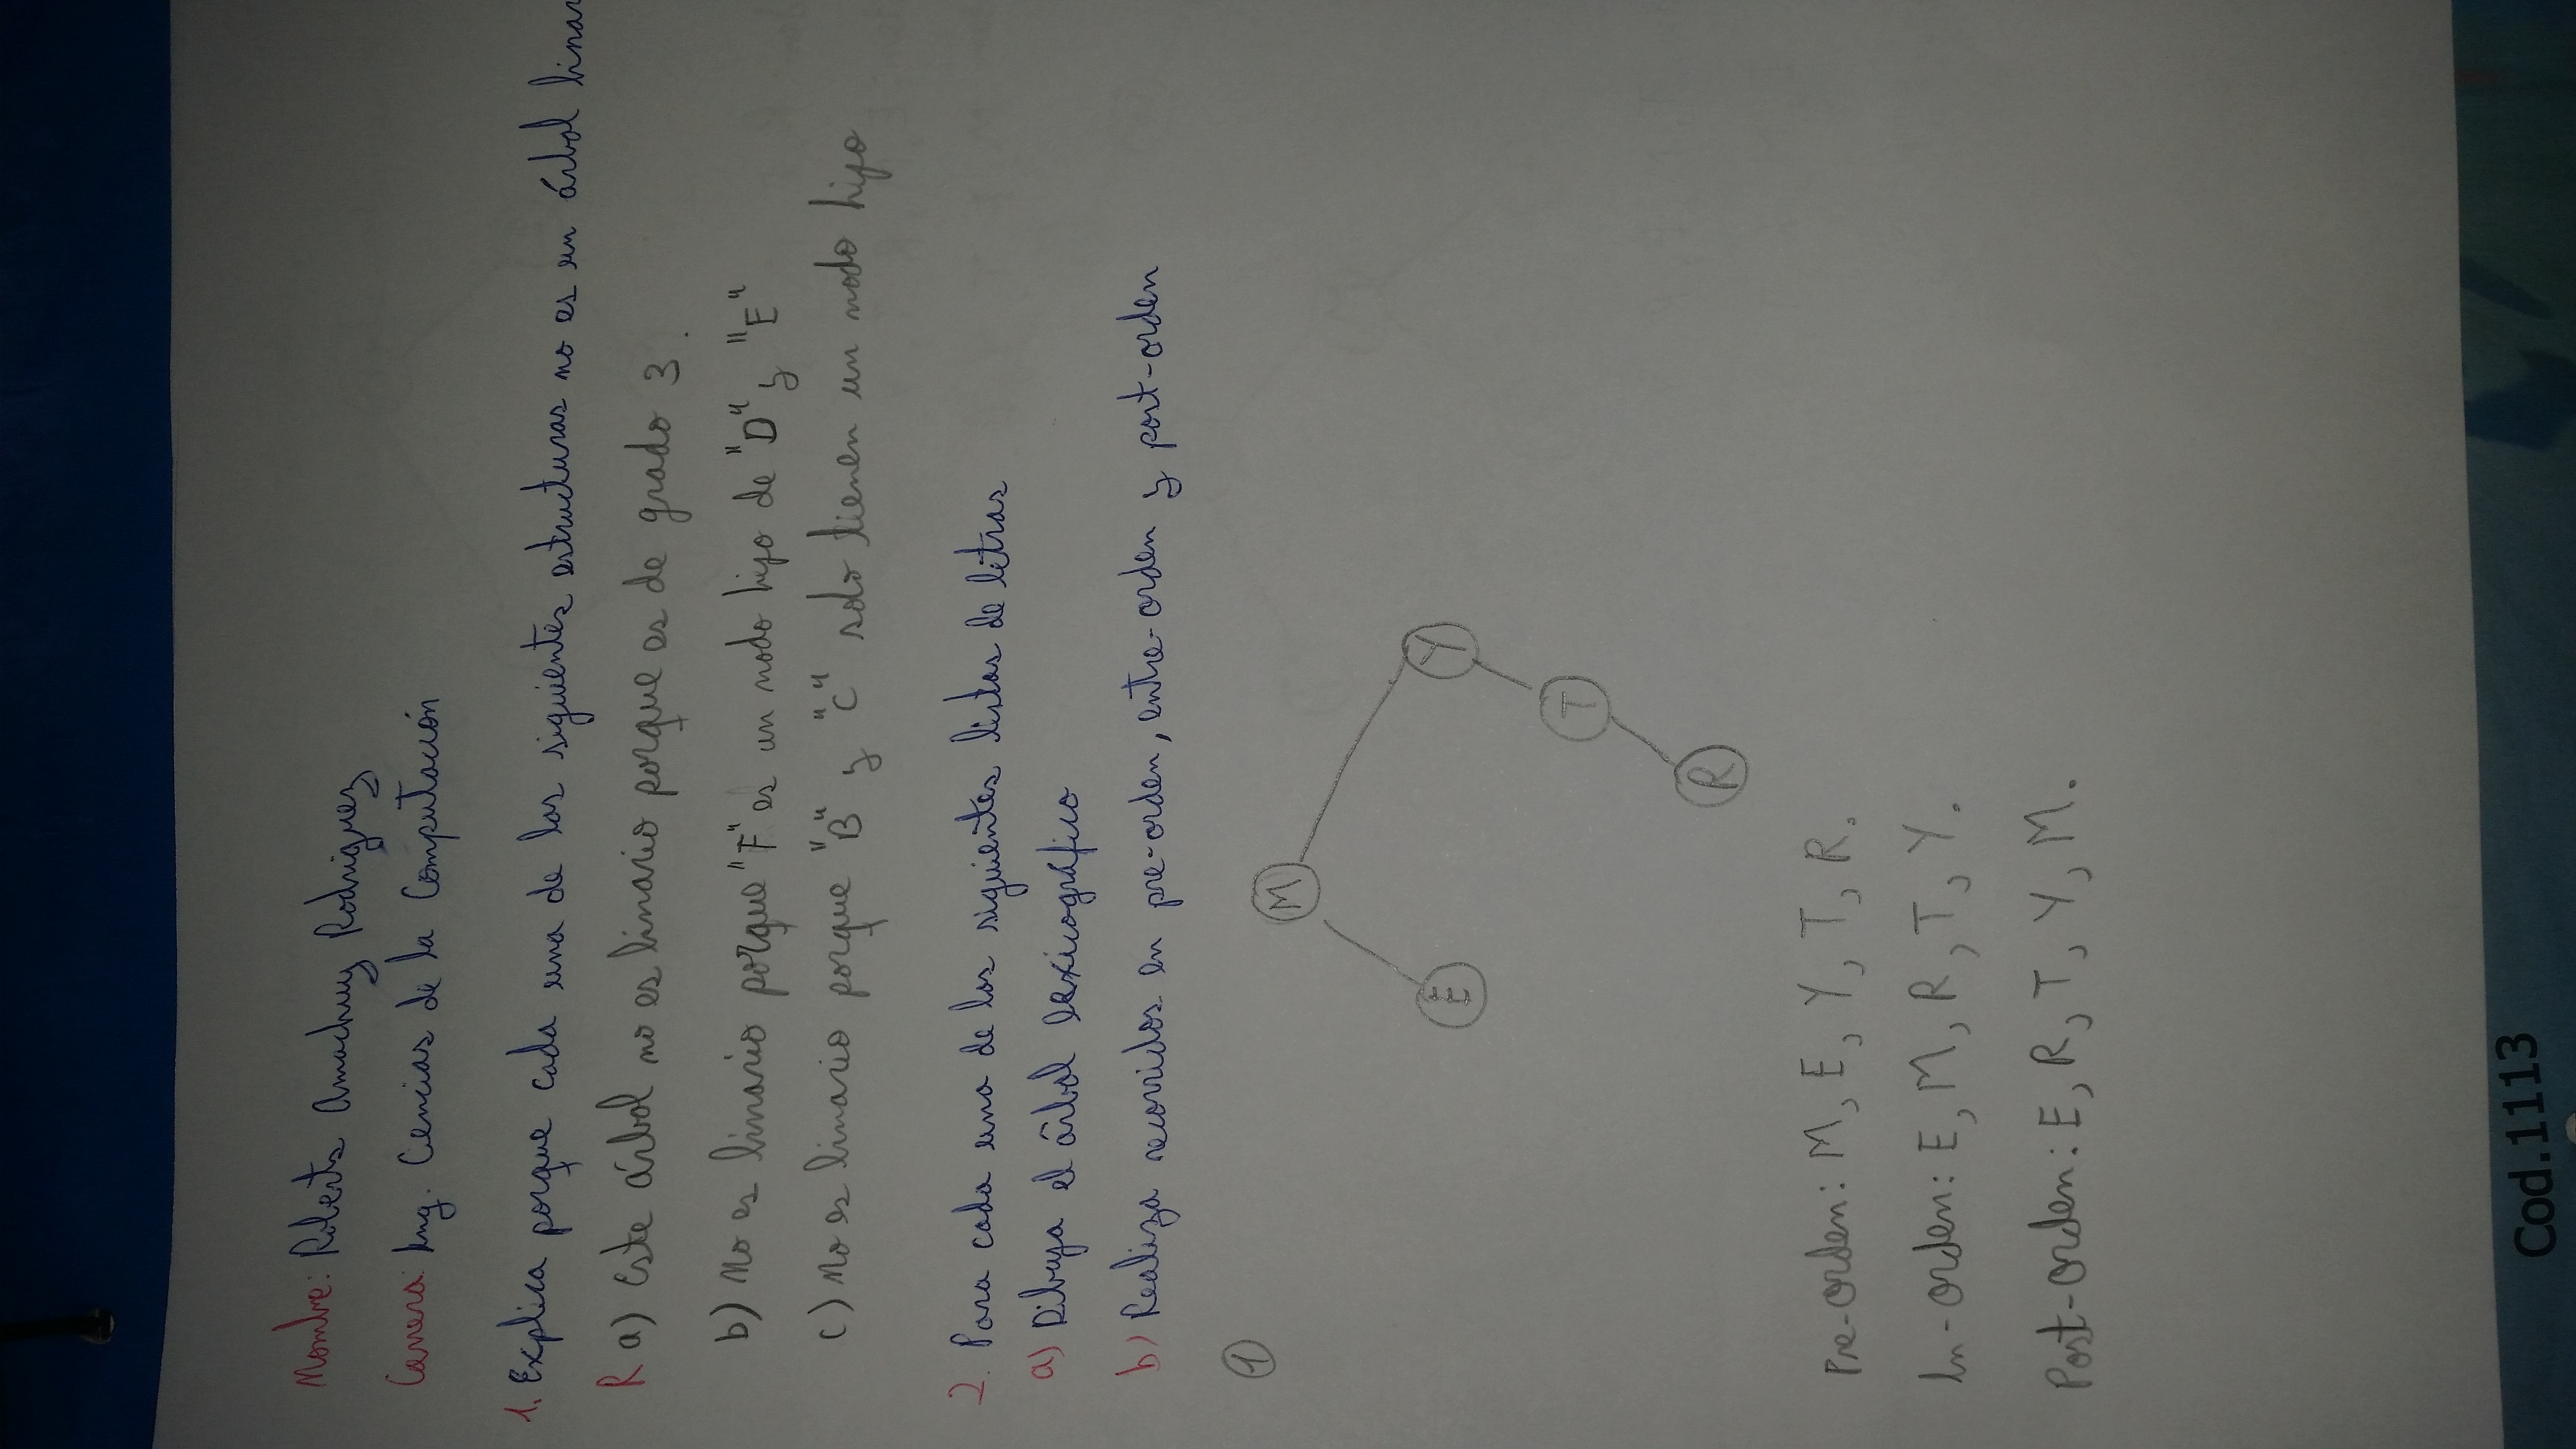 Nombre: Roberto Amachuy Rodriguez
Carrera: Ing. Cencias de la Computación
1. Explica porque cada una de las siguientes estructuras no es un árbol binar
R a) Este árbol no es binario porque es de grado 3.
b) No es binario porque "F" es un nodo hijo de "D" y "E"
c) No es binario porque "B" y "C" solo tienen un nodo hijo
2. Para cada una de las siguientes listas de letras
a) Dibuja el árbol lexicográfico
b) Realiza recorridos en pre-orden, entre-orden y post-orden
1
M
E Y
T
R
Pre-Orden: M, E, Y, T, R.
In-Orden: E, M, R, T, Y.
Post-Orden: E, R, T, Y, M.
Cod.1113